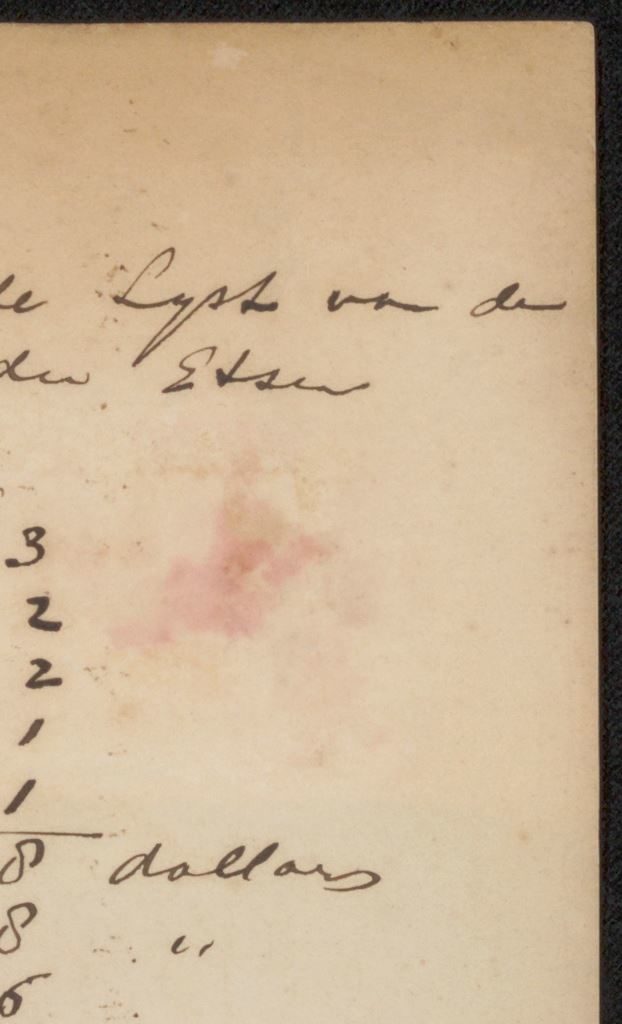 de Lyst van de
den Etsen
3
2
2
1
1
8 dollars
8 "
6